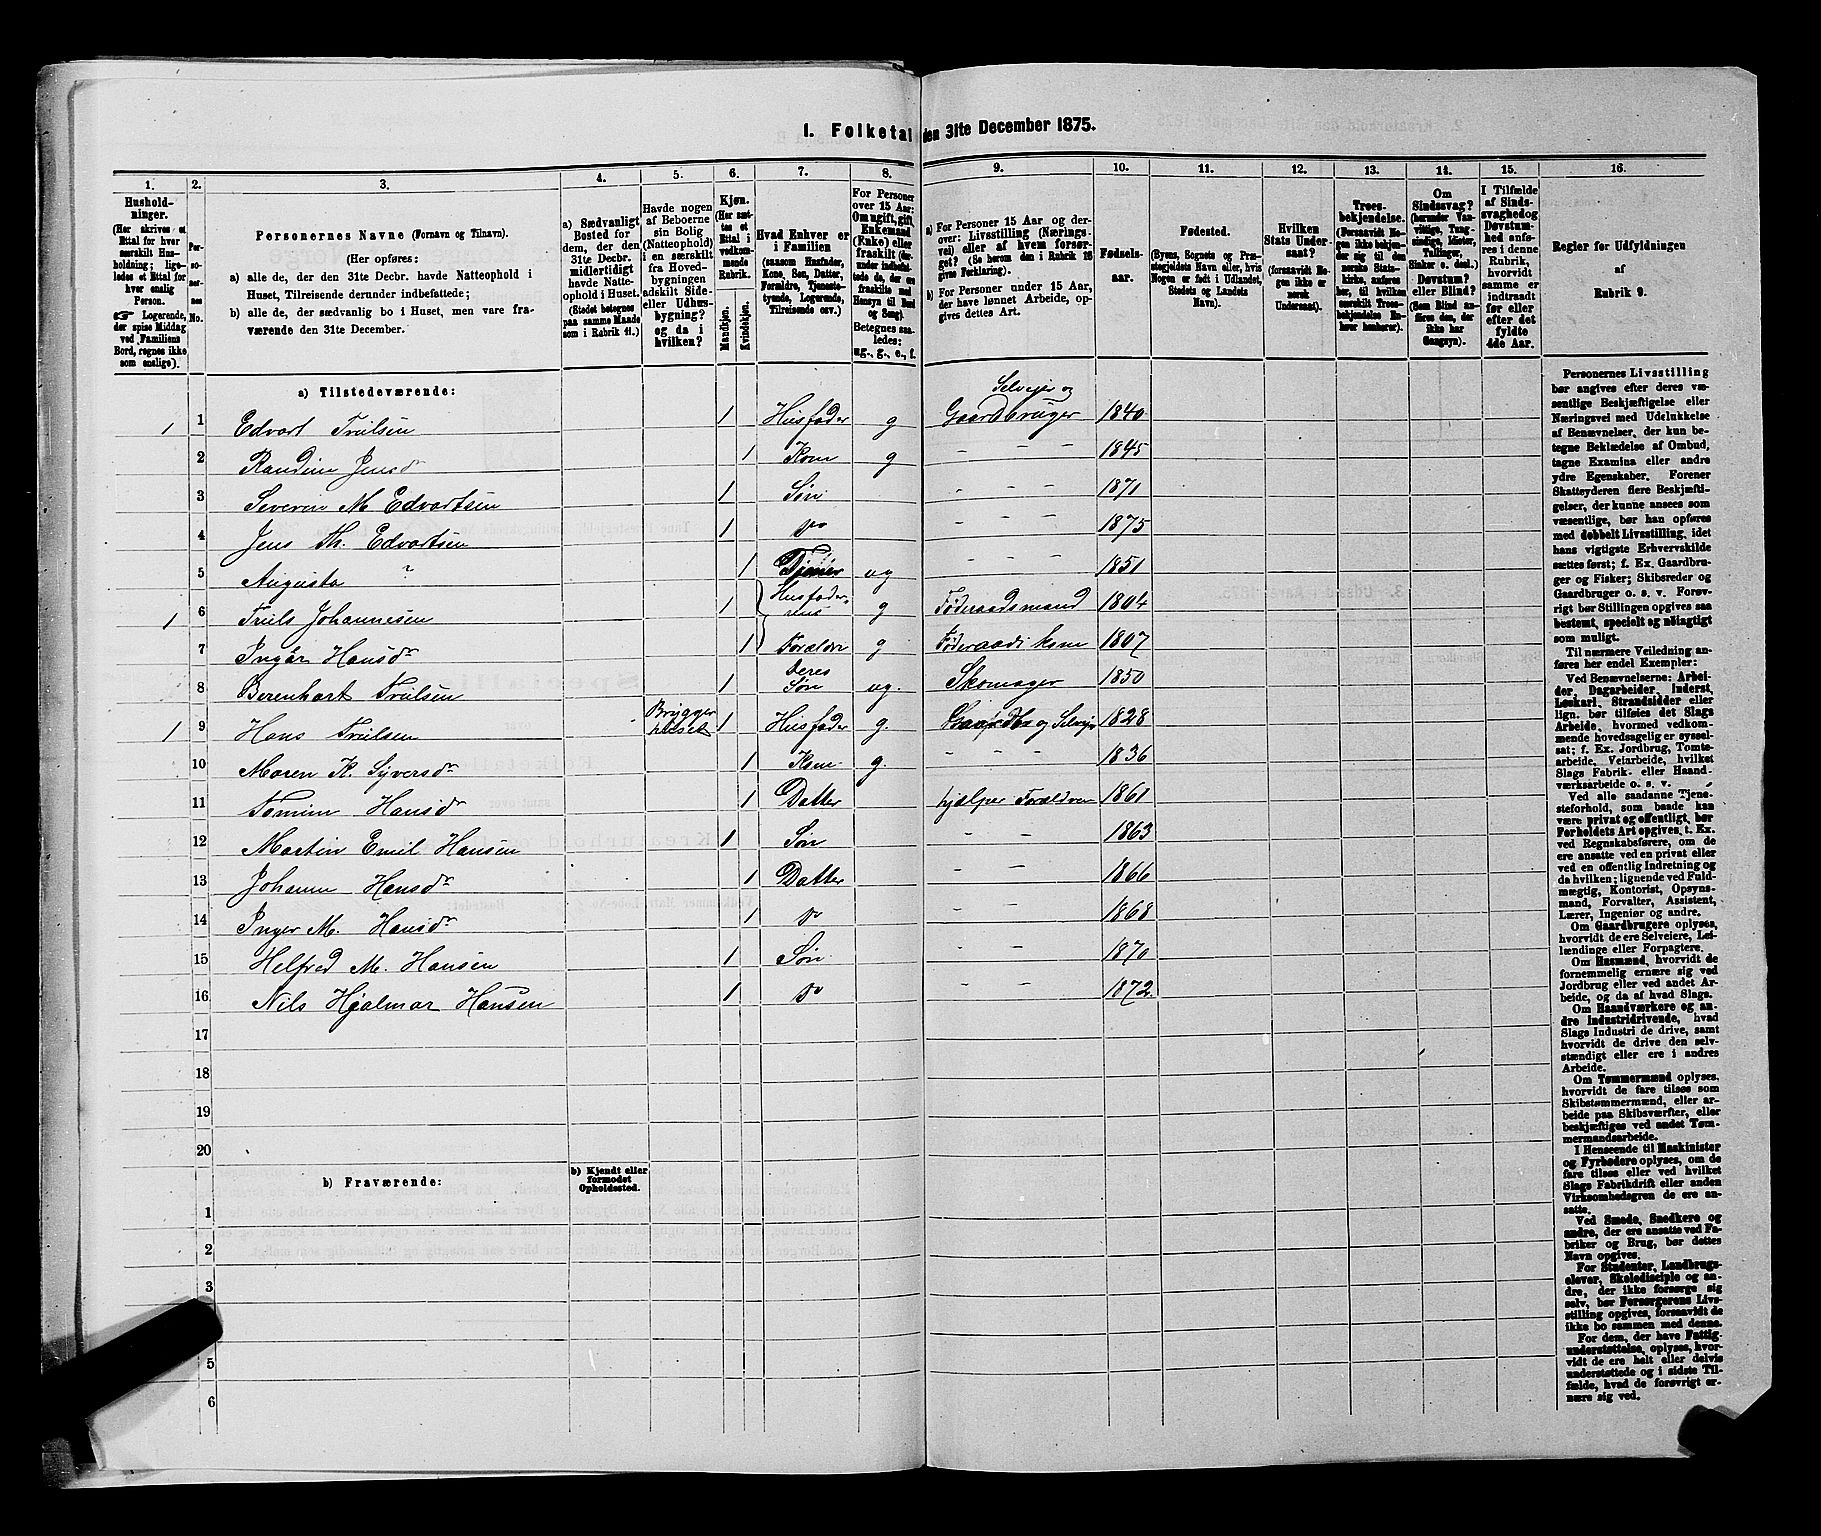 I. Folketal den 31te December 1875.
1.
2.
3.
4.
5.
6.
7.
8.
9.
10.
11.
12.
13.
14.
15.
16.
Hushold-
ninger.
(Her skrives et
Ettal for hver
særskilt Hus-
holdning; lige-
ledes et Ettal for
hver enlig
Person.
Logerende,
der spise Middag
ved Familiens
Bord, regnes ikke
som enslige).
Per-
so-
ner-
nes
No.
Personernes Navne (Fornavn og Tilnavn).
(Her opføres:
a) alle de, der den 31te Decbr. havde Natteophold i
Huset, Tilreisende derunder indbefattede;
b) alle de, der sædvanlig bo i Huset, men vare fra-
værende den 31te December.
a) Sædvanligt
Bosted for
dem, der den
31te Decbr.
midlertidigt
havde Natte-
ophold i Huset.
(Stedet betegnes
paa samme Maade
som i Rubrik 11.)
Havde nogen
af Beboerne
sin Bolig
(Natteophold)
i en særskilt
fra Hoved-
bygningen
adskilt Side-
eller Udhus-
bygning?
og da i
hvilken?
Kjøn.
(Her sæt-
tes et
Ettal i
vedkom-
mende
Rubrik.
Mandkjøn.
Kvindekjøn.
Hvad Enhver er
i Familien
(saasom Husfader,
Kone, Søn, Datter,
Forældre, Tjeneste-
tyende, Logerende,
Tilreisende osv.)
For Personer
over 15 Aar:
Om ugift, gift
Enkemand
(Enke) eller
fraskilt
Betegnes saa-
ledes:
ug., g., e., f.
a) For Personer 15 Aar og der-
over: Livsstilling (Nærings-
vei) eller af hvem forsør-
get? (Se herom den i Rubrik 16
givne Forklaring).
b) For Personer under 15 Aar,
der have lønnet Arbeide, op-
gives dettes Art.
Fødsels-
aar.
Fødested.
(Byens, Sognets og Præ-
stegjeldets Navn eller, hvis
Nogen er født i Udlandet,
Stedets og Landets
Navn).
Hvilken
Stats Under-
saat?
(forsaavidt No-
gen ikke er
norsk
Undersaat).
Troes-
bekjendelse.
(Forsaavidt No-
gen ikke bekjen-
der sig til den
norske Stats-
kirke, anføres
her, til hvilken
særskilt Troes-
bekjendelse En-
hver henhører).
Om
Sindssvag?
(herunder Van-
vittige, Tung-
sindige, Idioter,
Tullinger,
Sinker o. desl.)
Døvstum?
eller Blind?
(Som Blind an-
føres den, der
ikke har
Gangsyn).
I Tilfælde
af Sinds-
svaghed og
Døvstum-
hed anfø-
res i denne
Rubrik,
hvorvidt
samme er
indtraadt
før eller
efter det
fyldte
4de Aar.
Regler for Udfyldningen
af
Rubrik 9.
a) Tilstedeværende:
1 1 Edvart Trulsen 1 Husfader g Selveier og Gaardbruger 1840
2 Randine Jensd 1 Kone g - - - 1845
3 Severin M Edvartsen 1 Søn - - - 1871
4 Jens Th. Edvartsen 1 do - - - 1875
5 Augusta ? 1 Tjener ug - - - 1851
1 6 Truls Johannesen 1 Husfaderens g Føderaadsmand 1804
7 Ingår Hansdr 1 Forældre g Føderaads kone 1807
8 Berenhart Trulsen 1 Deres Søn ug. Skomager 1850
1 9 Hans Trulsen Bryggerhuset 1 Husfader g. Gaardbr og Selveier 1828
10 Maren K. Syversdr 1 Kone g. - - - 1836
11 Hansdr 1 Datter hjælper Forældrene 1861
12 Martin Emil Hansen 1 Søn - - 1863
13 Johanne Hansdr 1 Datter - - 1866
14 Inger M. Hansdr 1 do - - 1868
15 Helfred M. Hansen 1 Søn - - 1870
16 Nils Hjalmar Hansen 1 do - - 1872.
17
18
19
20
b) Fraværende:
b) Kjendt eller
formodet
Opholdssted.
1
2
3
5
6
Personernes Livsstilling
bør angives efter deres væ-
sentlige Beskjæftigelse eller
Næringsvei med Udelukkelse
af Benævnelser, der kun be-
tegne Beklædelse af Ombud,
tagne Examina eller andre
ydre Egenskaber. Forener
Skatteyderen flere Beskjæfti-
gelser, der kunne ansees som
væsentlige, bør han opføres
med dobbelt Livsstilling, idet
hans vigtigste Erhvervskilde
sættes først; f. Ex. Gaardbru-
ger og Fisker; Skibsreder og
Gaardbruger o. s. v. Forøv-
rigt bør Stillingen opgives saa
bestemt, specielt og nøiagtigt
som muligt.
Til nærmere Veiledning an-
føres her endel Exempler:
Ved Benævnelserne: Arbei-
der, Dagarbeider, Inderst,
Løskarl, Strandsidder eller
lign. bør tilføies det Slags
Arbeide, hvormed vedkom-
mende hovedsagelig er syssel-
sat; f. Ex. Jordbrug, Tomte-
arbeide, Veiarbeide, hvilket
Slags Fabrik- eller Haand-
værksarbeide o. s. v.
Ved alle saadanne Tjene-
steforhold, som baade kan
være privat og offentligt, bør
Forholdets Art opgives, t. Ex.
ved Regnskabsførere, om de
ere ansatte ved en privat eller
ved en offentlig Indretning og
da hvilken; lignende ved Fuld-
mægtig, Kontorist, Opsyns-
mand, Forvalter, Assistent,
Lærer, Ingeniør og andre.
Om Gaardbrugere oplyses,
hvorvidt de ere Selveiere, Lei-
lændinge eller Forpagtere.
Om Husmænd, hvorvidt de
fornemmelig ernære sig ved
Jordbrug eller ved andet Ar-
beide, og da af hvad Slags.
Om Haandværkere og an-
dre Industridrivende, hvad
Slags Industri de drive, samt
hvorvidt de drive den selv-
stændigt eller ere i andres
Arbeide.
Om Tømmermænd oplyses,
hvorvidt de fare tilsøs som
Skibstømmermænd, eller ar-
beide paa Skibsværfter, eller
beskjæftiges ved andet Tøm-
mermandsarbeide.
I Henseende til Maskinister
og Fyrbødere oplyses, om de
fare tilsøs eller ved hvilket
Slags Fabrikdrift eller anden
Virksomhedsgren de ere an-
satte.
Ved Smede, Snedkere og
andre, der ere ansatte ved Fa-
briker og Brug, bør dettes
Navn opgives.
For Studenter, Landbrugs-
elever, Skoledisciple og an-
dre, der ikke forsørge sig
selv, bør Forsørgerens Livs-
stilling opgives, forsaavidt de
ikke bo sammen med denne.
For dem, der have Fattig-
understøttelse, oplyses, hvor-
vidt de ere helt eller delvis
understøttede og i sidste Til-
fælde, hvad de forøvrigt er-
nære sig ved.